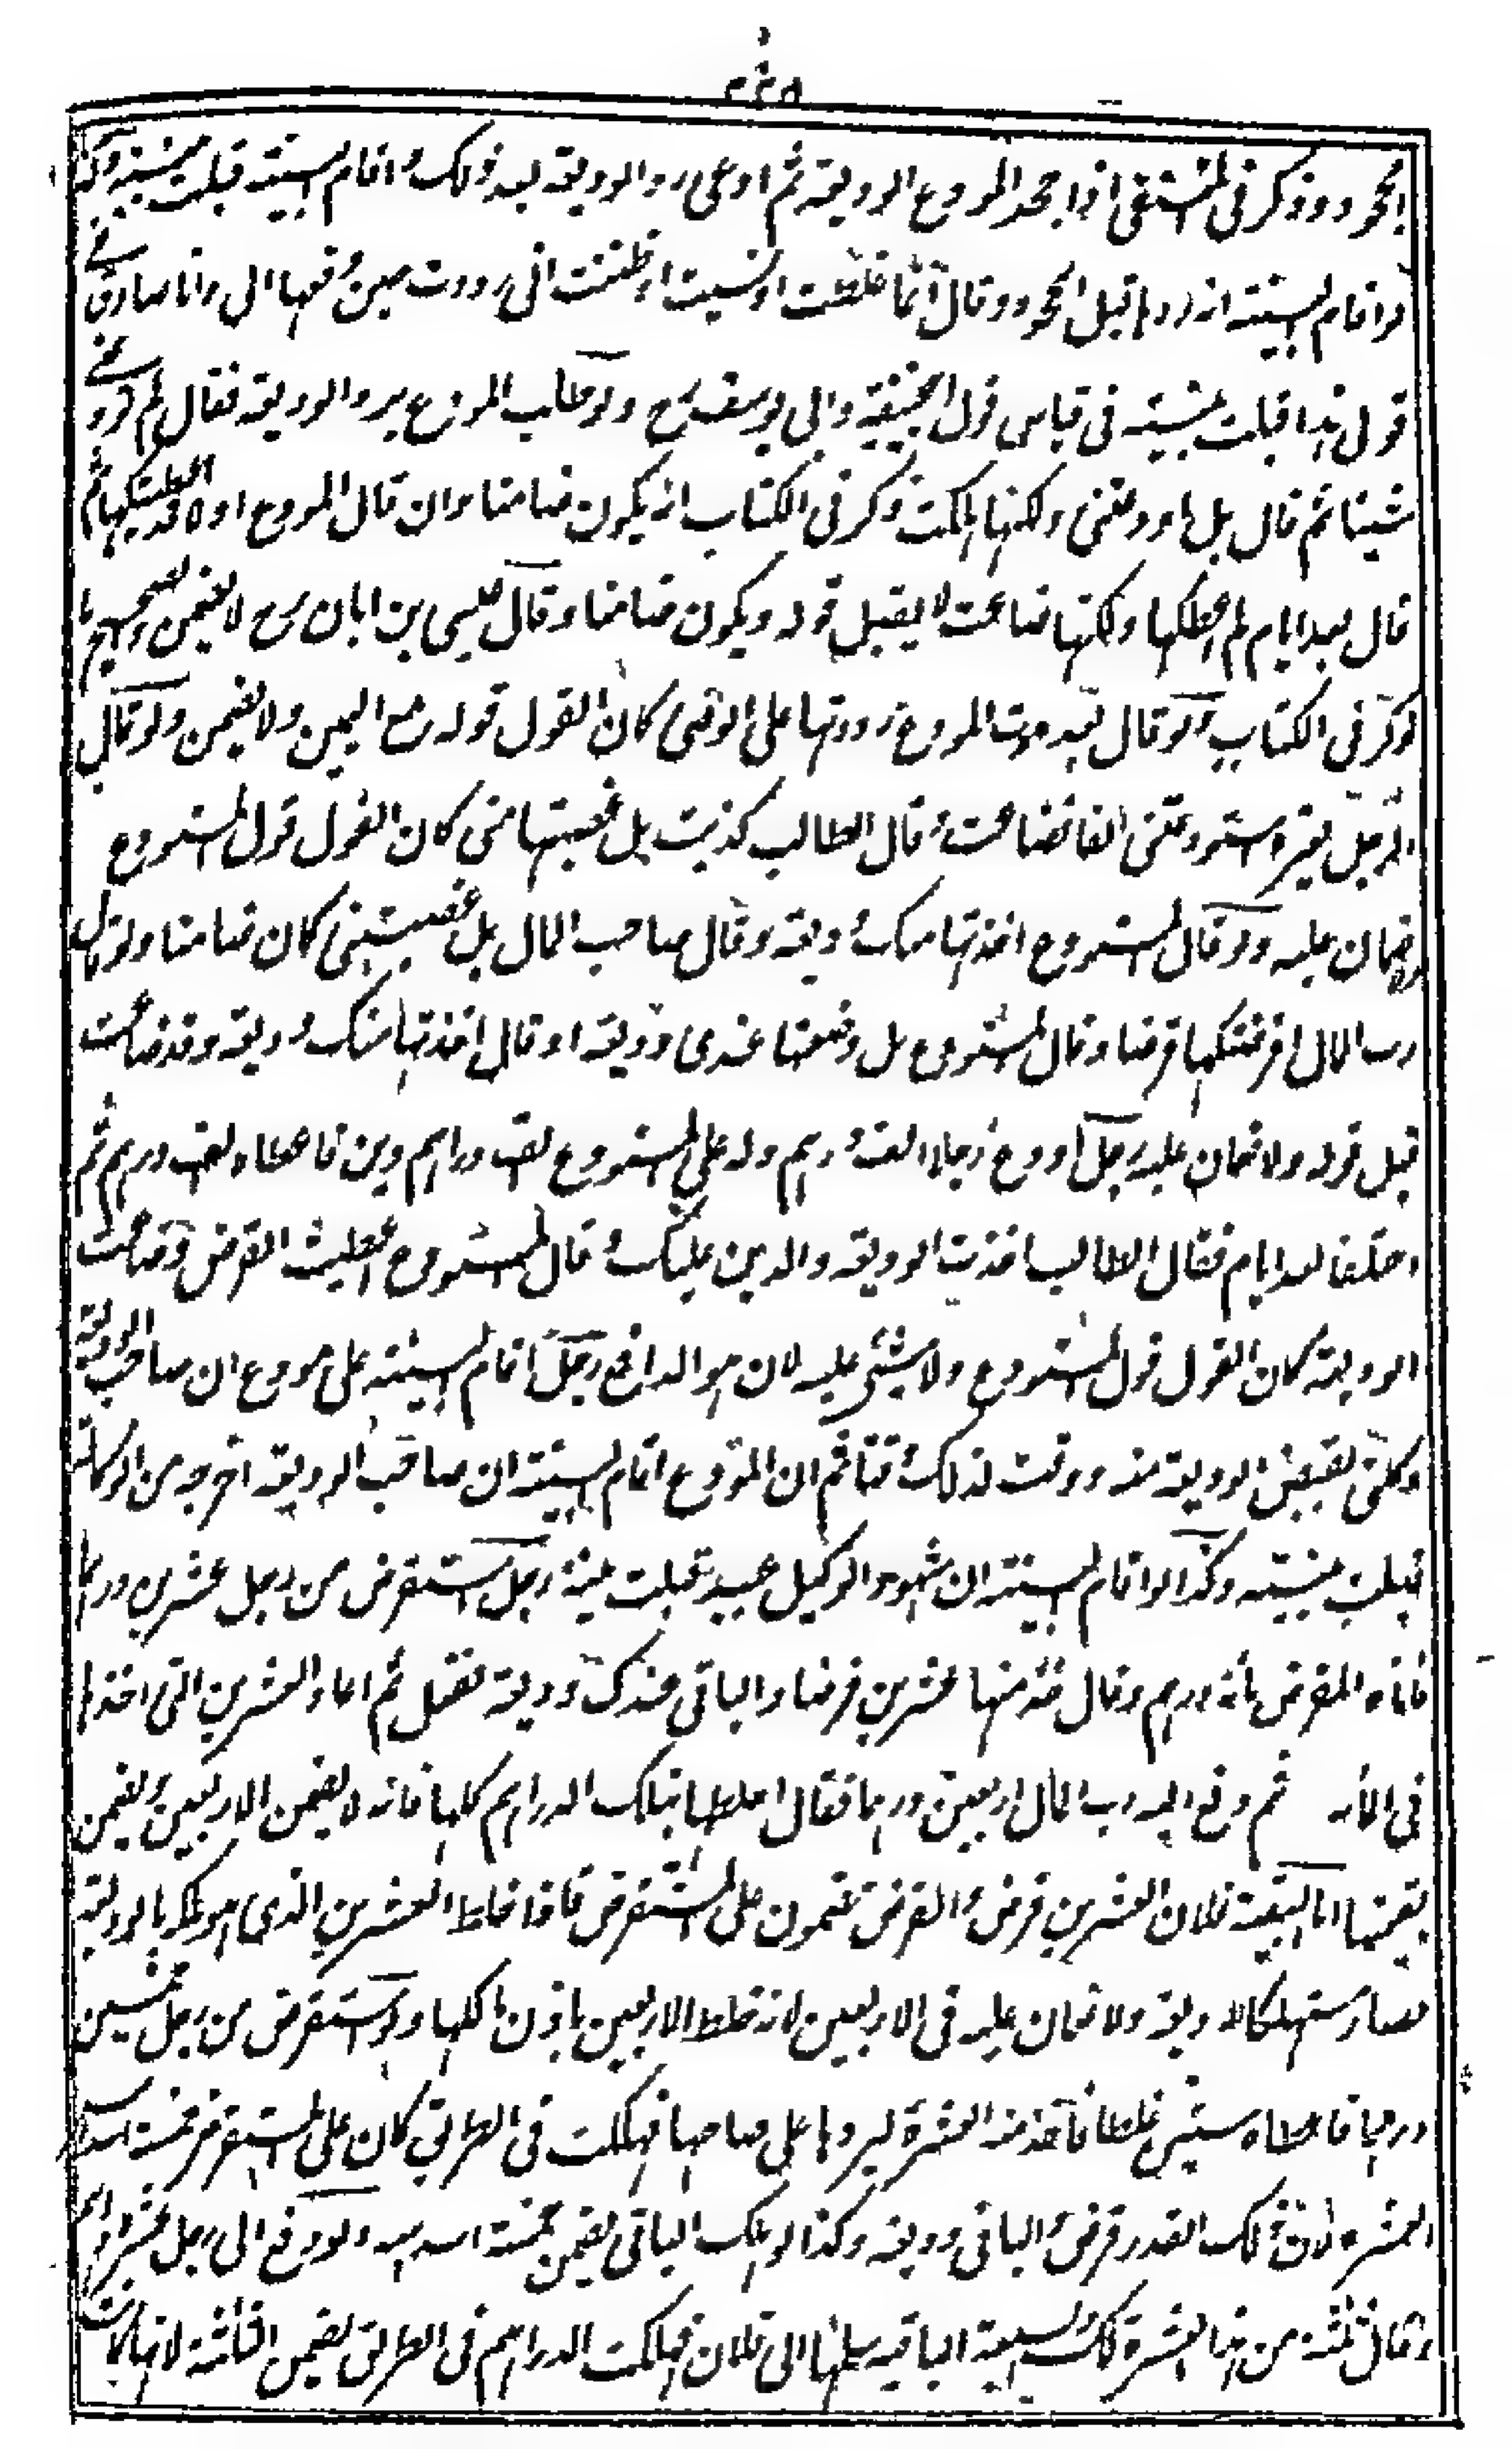 ٢٢٥
الجحود وذكر في المنتقى اذا جحد المودع الوديعة ثم ادعى رد الوديعة بعد ذلك و اقام البينة قبلت بينته وكذا
لو اقام البينة انه ردها قبل الجحود وقال انما غلطت او نسيت او ظننت انى رددت حين دفعها الى وانا صادق في
قولي هذا قبلت بينته في قياس قول ابي حنيفة وابي يوسف رح ولو طالب المودع برد الوديعة فقال لم تودعني
شيئا ثم قال بل اودعتني ولكنها هلكت ذكر في الكتاب انه يكون ضامنا وان قال المودع اولا قد اعطيتكها ثم
قال بعد ايام لم اعطكها ولكنها ضاعت لا يقبل قوله ويكون ضامنا وقال عيسى بن ابان رح لا يضمن والصحيح ما
ذكر في الكتاب ولو قال بعد موت المودع رددتها على الوصي كان القول قوله مع اليمين ولا يضمن ولو قال
الرجل لغيره استودعتني الفا فضاعت و قال الطالب كذبت بل غصبتها مني كان القول قول المستودع
ولا ضمان عليه ولو قال المستودع اخذتها منك وديعة وقال صاحب المال بل غصبتني كان ضامنا ولو قال
رب المال اقرضتكها قرضا وقال المستودع بل وضعتها عندي وديعة او قال اخذتها منك وديعة وقد ضاعت
قبل قوله ولا ضمان عليه رجل اودع رجلا الف درهم وله على المستودع الف دراهم دين فاعطاه الف درهم ثم
اختلفا بعد ايام فقال الطالب اخذت الوديعة والدين عليك و قال المستودع اعطيت القرض وضاعت
الوديعة كان القول قول المستودع ولا شيء عليه لانه هو الدافع رجل اقام البينة على مودع ان صاحب الوديعة
وكلني بقبض الوديعة منه ووقت لذلك وقتا ثم ان المودع اقام البينة ان صاحب الوديعة اخرجه من الوكالة
قبلت بينته وكذا لو اقام البينة ان شهود الوكيل عبيد قبلت بينة رجل استقرض من رجل عشرين درهما
فاتاه المقرض بمائة درهم وقال خذ منها عشرين قرضا والباقي عندك وديعة ففعل ثم اعاد العشرين التي اخذها
في المائة ثم دفع اليه رب المال اربعين درهما فقال اخلطها بتلك الدراهم كلها فانه لا يضمن الاربعين ويضمن
بقيتها اما البقية فلان العشرين قرض و القرض مضمون على المستقرض فاذا خلط العشرين الذي هو ملكه بالوديعة
صار مستهلكا للوديعة ولا ضمان عليه في الاربعين لانه خلط الاربعين باذن مالكها ولو استقرض من رجل خمسين
درهما فاعطاه ستين غلطا فاخذ منه العشرة ليردها على صاحبها فهلكت في الطريق كان على المستقرض خمسة اسداس
العشرة لان ذلك القدر قرض و الباقي وديعة وكذا لو هلك الباقي يضمن خمسة اسداسه ولو دفع الى رجل عشرة دراهم
وقال ثلثة من هذا العشرة لك والسبعة الباقية سلمها الى فلان فهلكت الدراهم في الطريق يضمن الثلثة لانها كانت